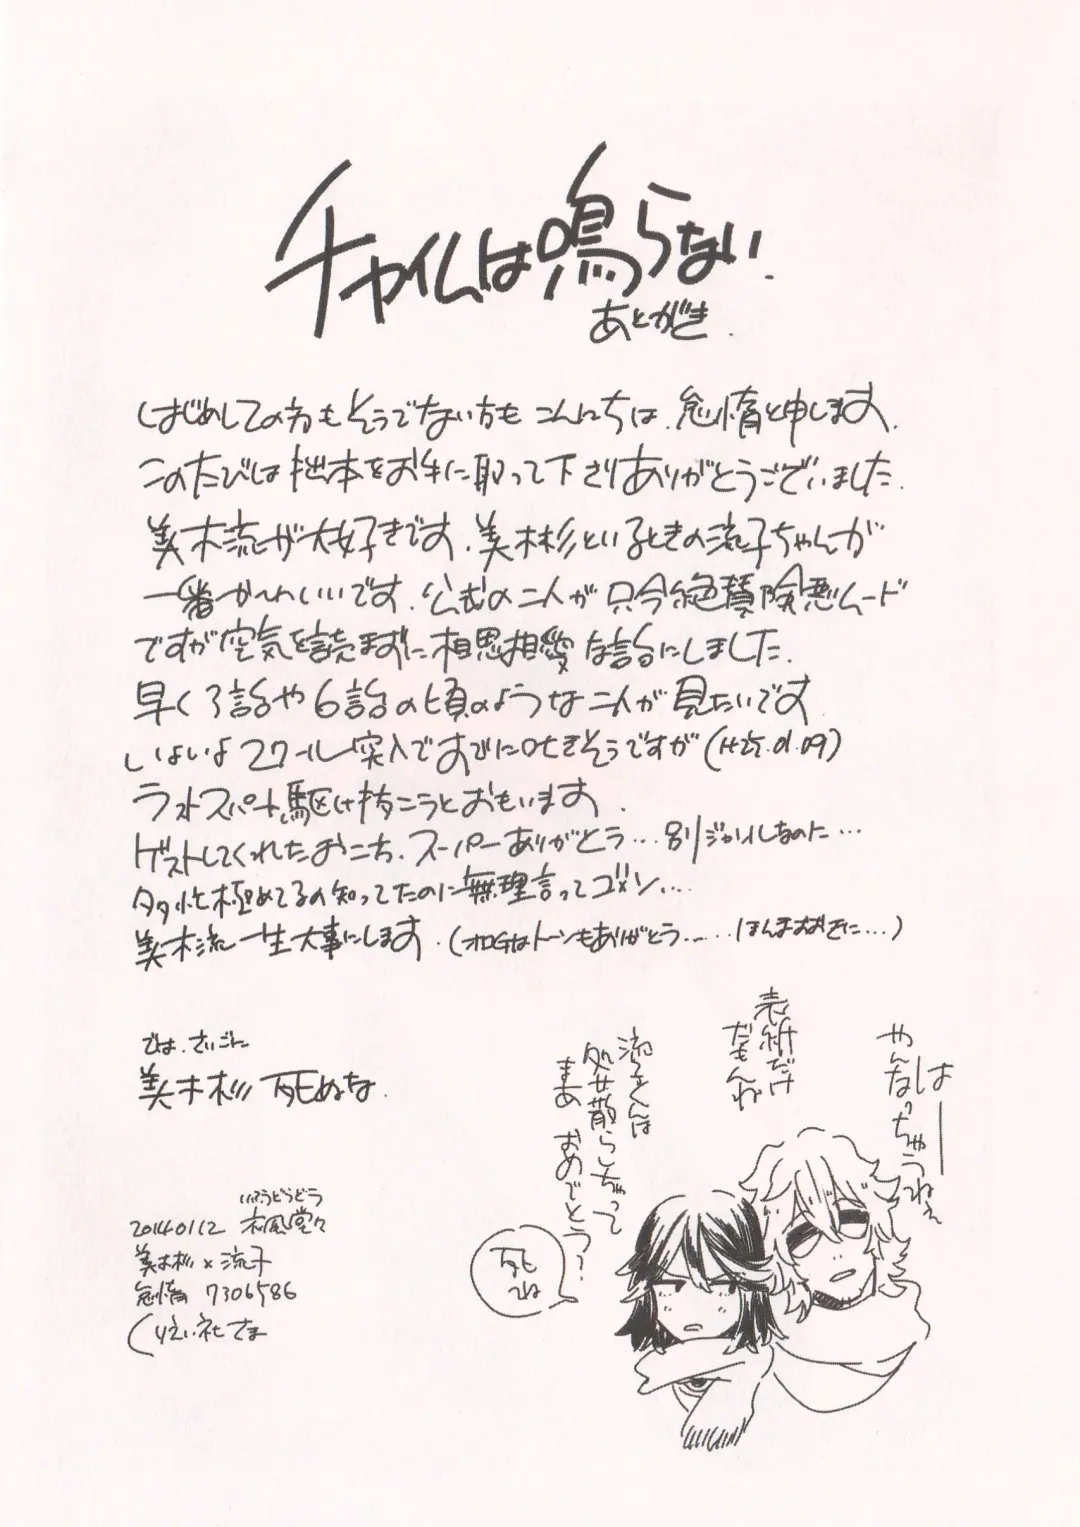 チャイムは鳴らない.
あとがき.
はじめしての方もそうでない方もこんにちは.怠惰と申します.
このたびは拙本をお手に取って下さりありがとうございました.
美木流が大好きです.美木杉といるときの流子ちゃんが
一番かわいいです.公式の二人が只今絶賛険悪ムード
ですが空気を読まずに相思相愛な話にしました.
早く3話や6話の頃のような二人が見たいです
いよいよ2クール突入ですでに吐きそうですが(H25.01.09)
ラストスパート駆け抜こうとおもいます.
ゲストしてくれたおこち.スーパーありがとう…別ジャンルなのに…
多忙極めてるの知ってたのに無理言ってゴメン….
美木流一生大事にします.(オロGはトーンもありがとう……ほんまおおきに…)
では.さいごに
美木杉死ぬな.
はー
やんなっちゃうねぇ
表紙だけ
だもんね
流子くんは
処女散らしちゃって
まあ おめでとう?
死ね
いふうどうどう
20140112 木風堂々
美木杉×流子
怠惰 7306586
くりえい社さま